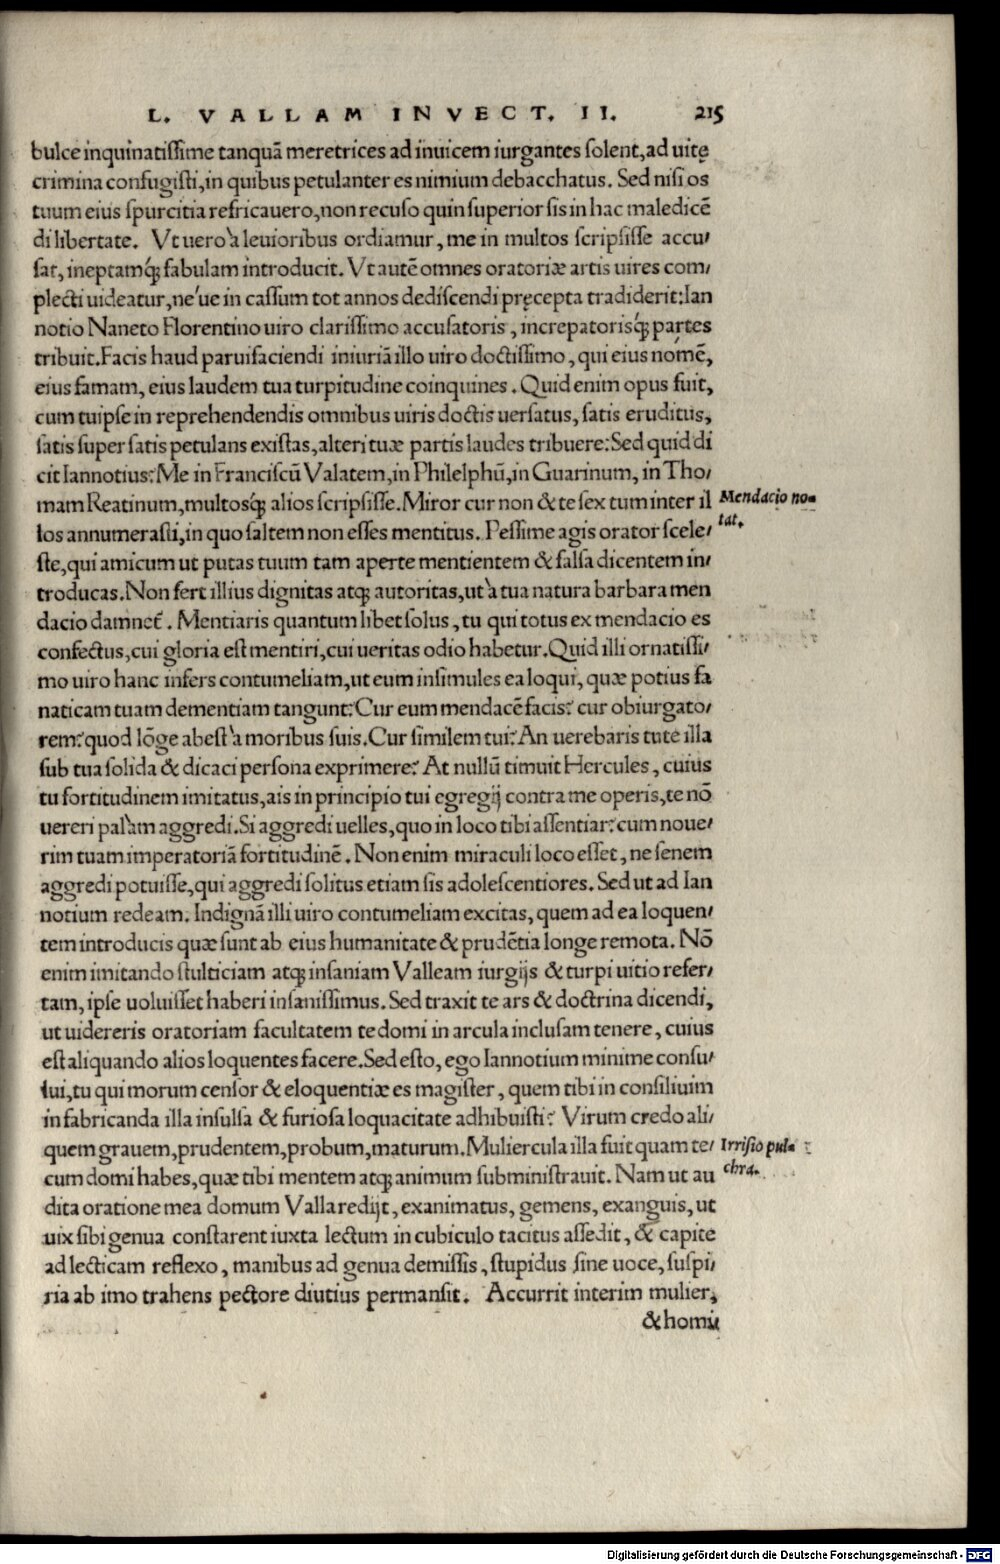 L. VALLAM INVECT. II. 215
bulce inquinatissime tanquã meretrices ad inuicem iurgantes solent, ad uitę
crimina confugisti, in quibus petulanter es nimium debacchatus. Sed nisi os
tuum eius spurcitia refricauero, non recuso quin superior sis in hac maledicẽ
di libertate. Vt uero à leuioribus ordiamur, me in multos scripsisse accu/
sat, ineptamq́; fabulam introducit. Vt autẽ omnes oratoriæ artis uires com/
plecti uideatur, ne'ue in cassum tot annos dediscendi pręcepta tradiderit: Ian
notio Naneto Florentino uiro clarissimo accusatoris, increpatorisq́; partes
tribuit. Facis haud paruifaciendi iniuriã illo uiro doctissimo, qui eius nomẽ,
eius famam, eius laudem tua turpitudine coinquines. Quid enim opus fuit,
cum tuipse in reprehendendis omnibus uiris doctis uersatus, satis eruditus,
satis super satis petulans existas, alteri tuæ partis laudes tribuere: Sed quid di
cit Iannotius? Me in Franciscũ Valatem, in Philelphũ, in Guarinum, in Tho/
mam Reatinum, multosq́; alios scripsisse. Miror cur non & te sex tum inter il
los annumerasti, in quo saltem non esses mentitus. Pessime agis orator scele/
ste, qui amicum ut putas tuum tam aperte mentientem & falsa dicentem in/
troducas. Non fert illius dignitas atq; autoritas, ut à tua natura barbara men
dacio damnet̃. Mentiaris quantum libet solus, tu qui totus ex mendacio es
confectus, cui gloria est mentiri, cui ueritas odio habetur. Quid illi ornatissi/
mo uiro hanc infers contumeliam, ut eum insimules ea loqui, quæ potius fa
naticam tuam dementiam tangunt? Cur eum mendacẽ facis? cur obiurgato/
rem? quod lõge abest à moribus suis. Cur similem tui? An uerebaris tute illa
sub tua solida & dicaci persona exprimere? At nullũ timuit Hercules, cuius
tu fortitudinem imitatus, ais in principio tui egregij contra me operis, te nõ
uereri palàm aggredi. Si aggredi uelles, quo in loco tibi assentiar? cum noue/
rim tuam imperatoriã fortitudinẽ. Non enim miraculi loco esset, ne senem
aggredi potuisse, qui aggredi solitus etiam sis adolescentiores. Sed ut ad Ian
notium redeam. Indignã illi uiro contumeliam excitas, quem ad ea loquen/
tem introducis quæ sunt ab eius humanitate & prudẽtia longe remota. Nõ
enim imitando stulticiam atq; insaniam Valleam iurgijs & turpi uitio refer/
tam, ipse uoluisset haberi insanissimus. Sed traxit te ars & doctrina dicendi,
ut uidereris oratoriam facultatem te domi in arcula inclusam tenere, cuius
est aliquando alios loquentes facere. Sed esto, ego Iannotium minime consu/
lui, tu qui morum censor & eloquentiæ es magister, quem tibi in consilium
in fabricanda illa insulsa & furiosa loquacitate adhibuisti? Virum credo ali/
quem grauem, prudentem, probum, maturum. Muliercula illa fuit quam te/
cum domi habes, quæ tibi mentem atq; animum subministrauit. Nam ut au
dita oratione mea domum Valla redijt, exanimatus, gemens, exanguis, ut
uix sibi genua constarent iuxta lectum in cubiculo tacitus assedit, & capite
ad lecticam reflexo, manibus ad genua demissis, stupidus sine uoce, suspi/
ria ab imo trahens pectore diutius permansit. Accurrit interim mulier,
& homi
Mendacio no-
tat.
Irrisio pul-
chra.
Digitalisierung gefördert durch die Deutsche Forschungsgemeinschaft - DFG